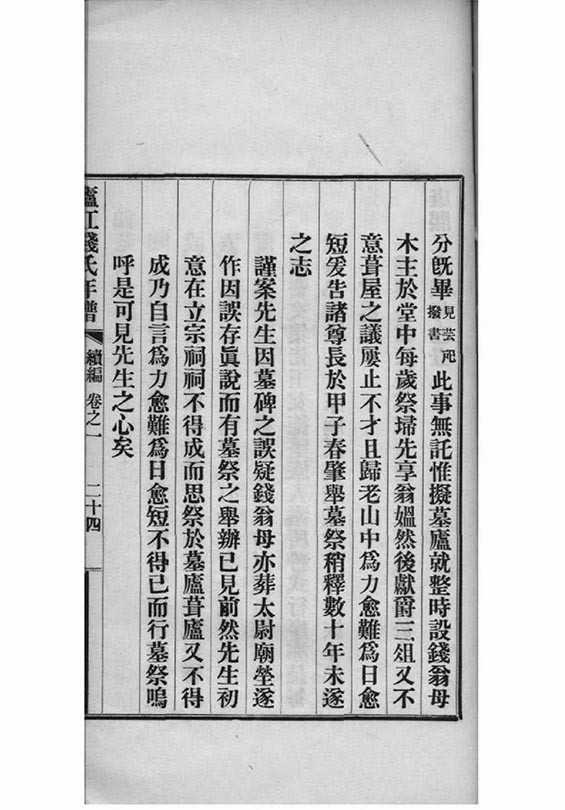 分旣畢見芸祀撥書此事無託惟擬墓廬就整時設錢翁母
木主於堂中每歲祭埽先享翁媼然後獻爵三俎又不
意葺屋之議屢止不才且歸老山中爲力愈難爲日愈
短爰吿諸尊長於甲子春肇舉墓祭稍釋數十年未遂
之志
謹案先生因墓碑之誤疑錢翁母亦葬太尉廟塋遂
作因誤存眞說而有墓祭之舉辦已見前然先生初
意在立宗祠祠不得成而思祭於墓廬葺廬又不得
成乃自言爲力愈難爲日愈短不得已而行墓祭嗚
呼是可見先生之心矣
廬江錢氏年譜 續編 卷之一 二十四